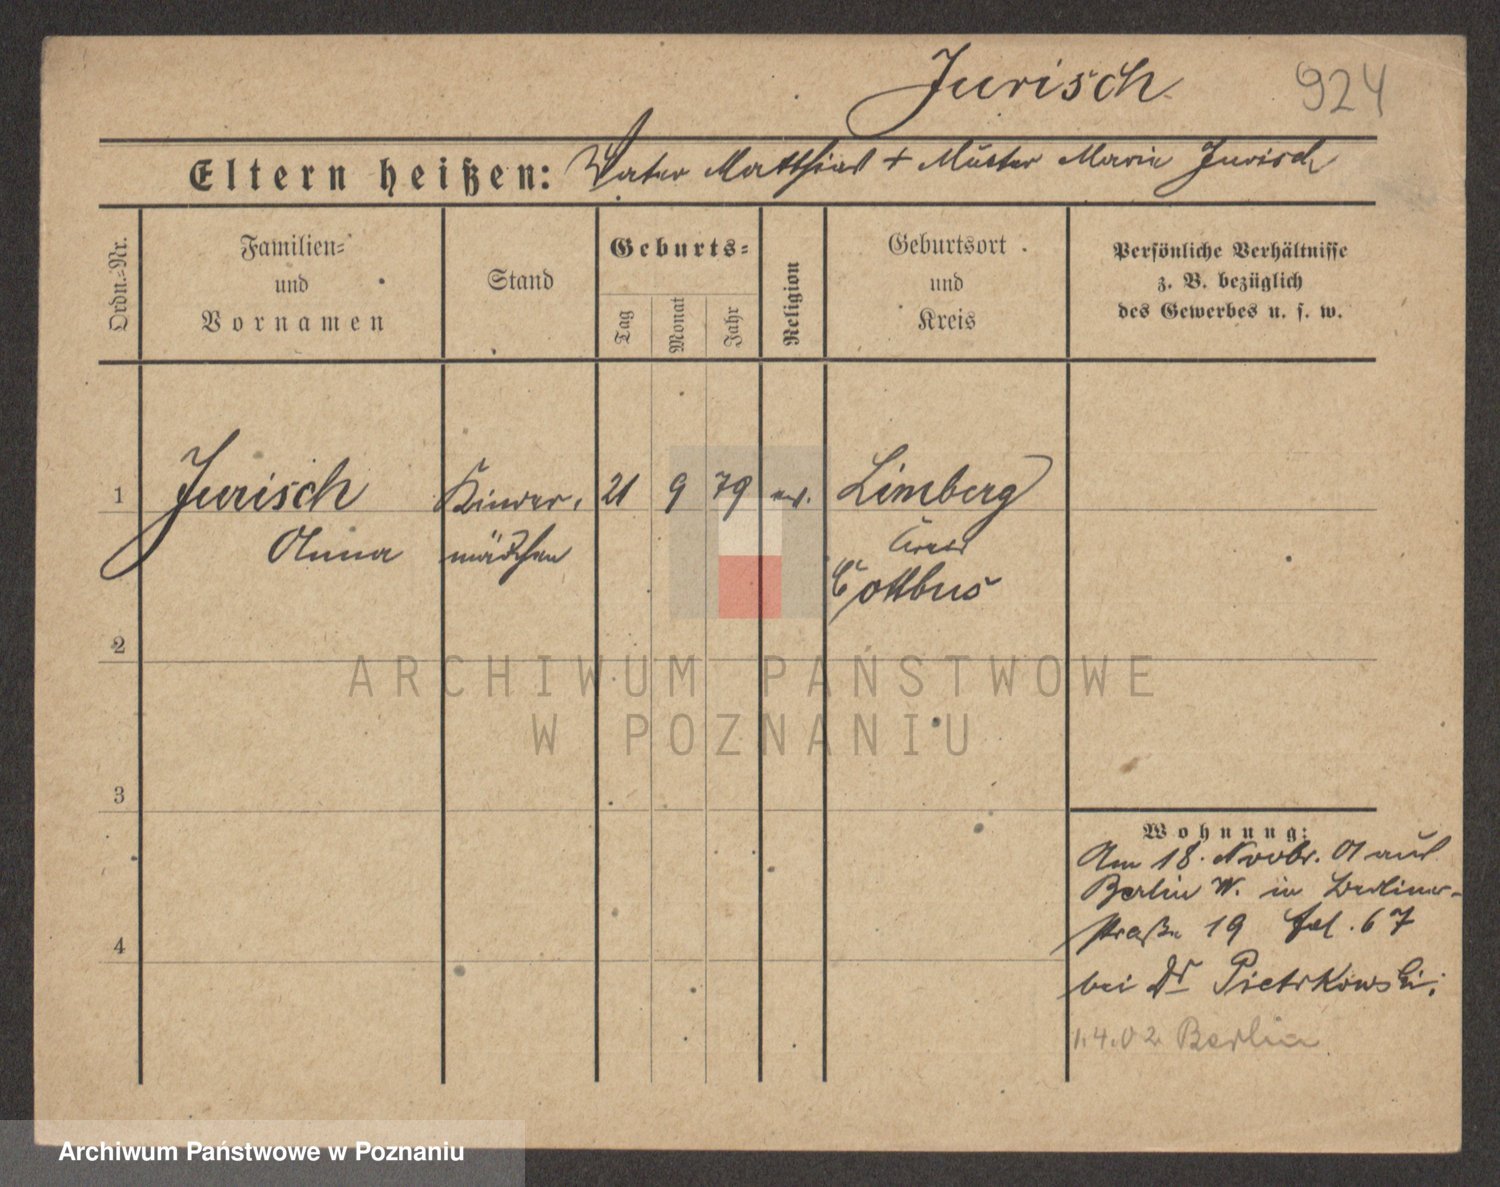 Jurisch
924
Eltern heißen: Vater Matthias + Mutter Marie Jurisch
Ordn.=Nr.
Familien=
und
Vornamen
Stand
Geburts=
Tag
Monat
Jahr
Religion
Geburtsort
und
Kreis
Persönliche Verhältnisse
z. B. bezüglich
des Gewerbes u. s. w.
1 Jurisch Kinder, 21 9 79 ev. Limberg
Anna mädchen Kreis
Cottbus
2
3
4
Wohnung:
Am 18. Novbr. 01 aus
Berlin W. in Berliner-
straße 19 fol. 67
bei Dr Pietrkowski;
1.4.02 Berlin
ARCHIWUM PAŃSTWOWE
W POZNANIU
Archiwum Państwowe w Poznaniu